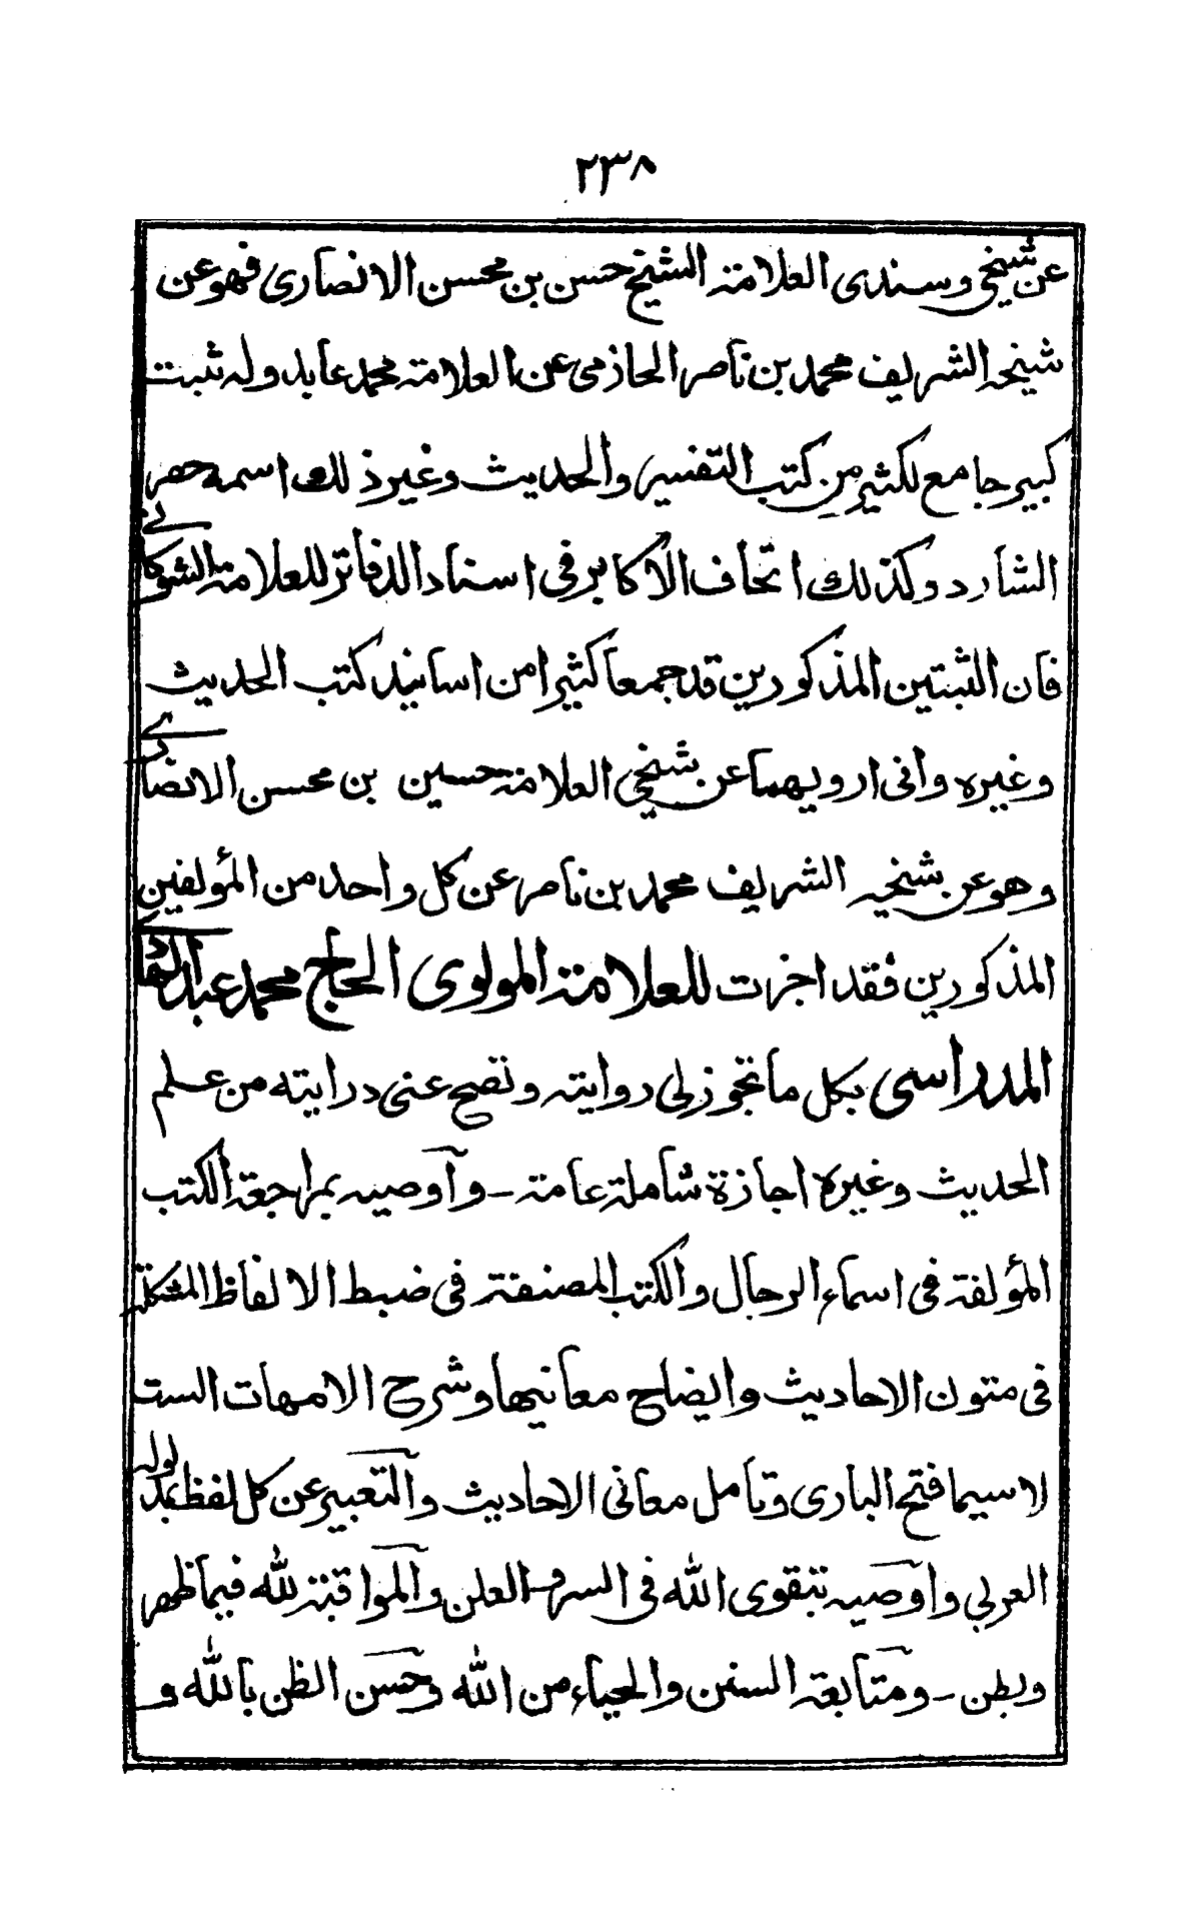 ٢٣٨
عن شيخي وسندى العلامة الشيخ حسن بن محسن الانصارى فهو عن
شيخه الشريف محمد بن ناصر الحاذمى عن العلامة محمد عابد وله ثبت
كبير جامع لكثير من كتب التفسير والحديث وغير ذلك اسمه حصر
الشارد وكذلك اتحاف الاكابر فى اسناد الدفاتر للعلامة الشوكانے
فان الثبتين المذكورين قد جمعا كثيرا من اسانيد كتب الحديث
وغيره وانى ارويهما عن شيخي العلامة حسين بن محسن الانصارے
وهو عن شيخه الشريف محمد بن ناصر عن كل واحد من المؤلفين
المذكورين فقد اجزت للعلامة المولوى الحاج محمد عبد الهادے
المدراسى بكل ما تجوز لى روايته وتصح عنى درايته من علم
الحديث وغيره اجازة شاملة عامة - وآوصيه بمراجعة الكتب
المؤلفة فى اسماء الرجال والكتب المصنفة فى ضبط الالفاظ المشكلة
فى متون الاحاديث وايضاح معانيها وشرح الامهات الست
لاسيما فتح البارى وتأمل معانى الاحاديث والتعبير عن كل لفظ بمدلوله
العربي واوصيه بتقوى الله فى السر والعلن والمواقبة لله فيما ظهر
وبطن - ومتابعة السنن والحياء من الله وحسن الظن بالله و